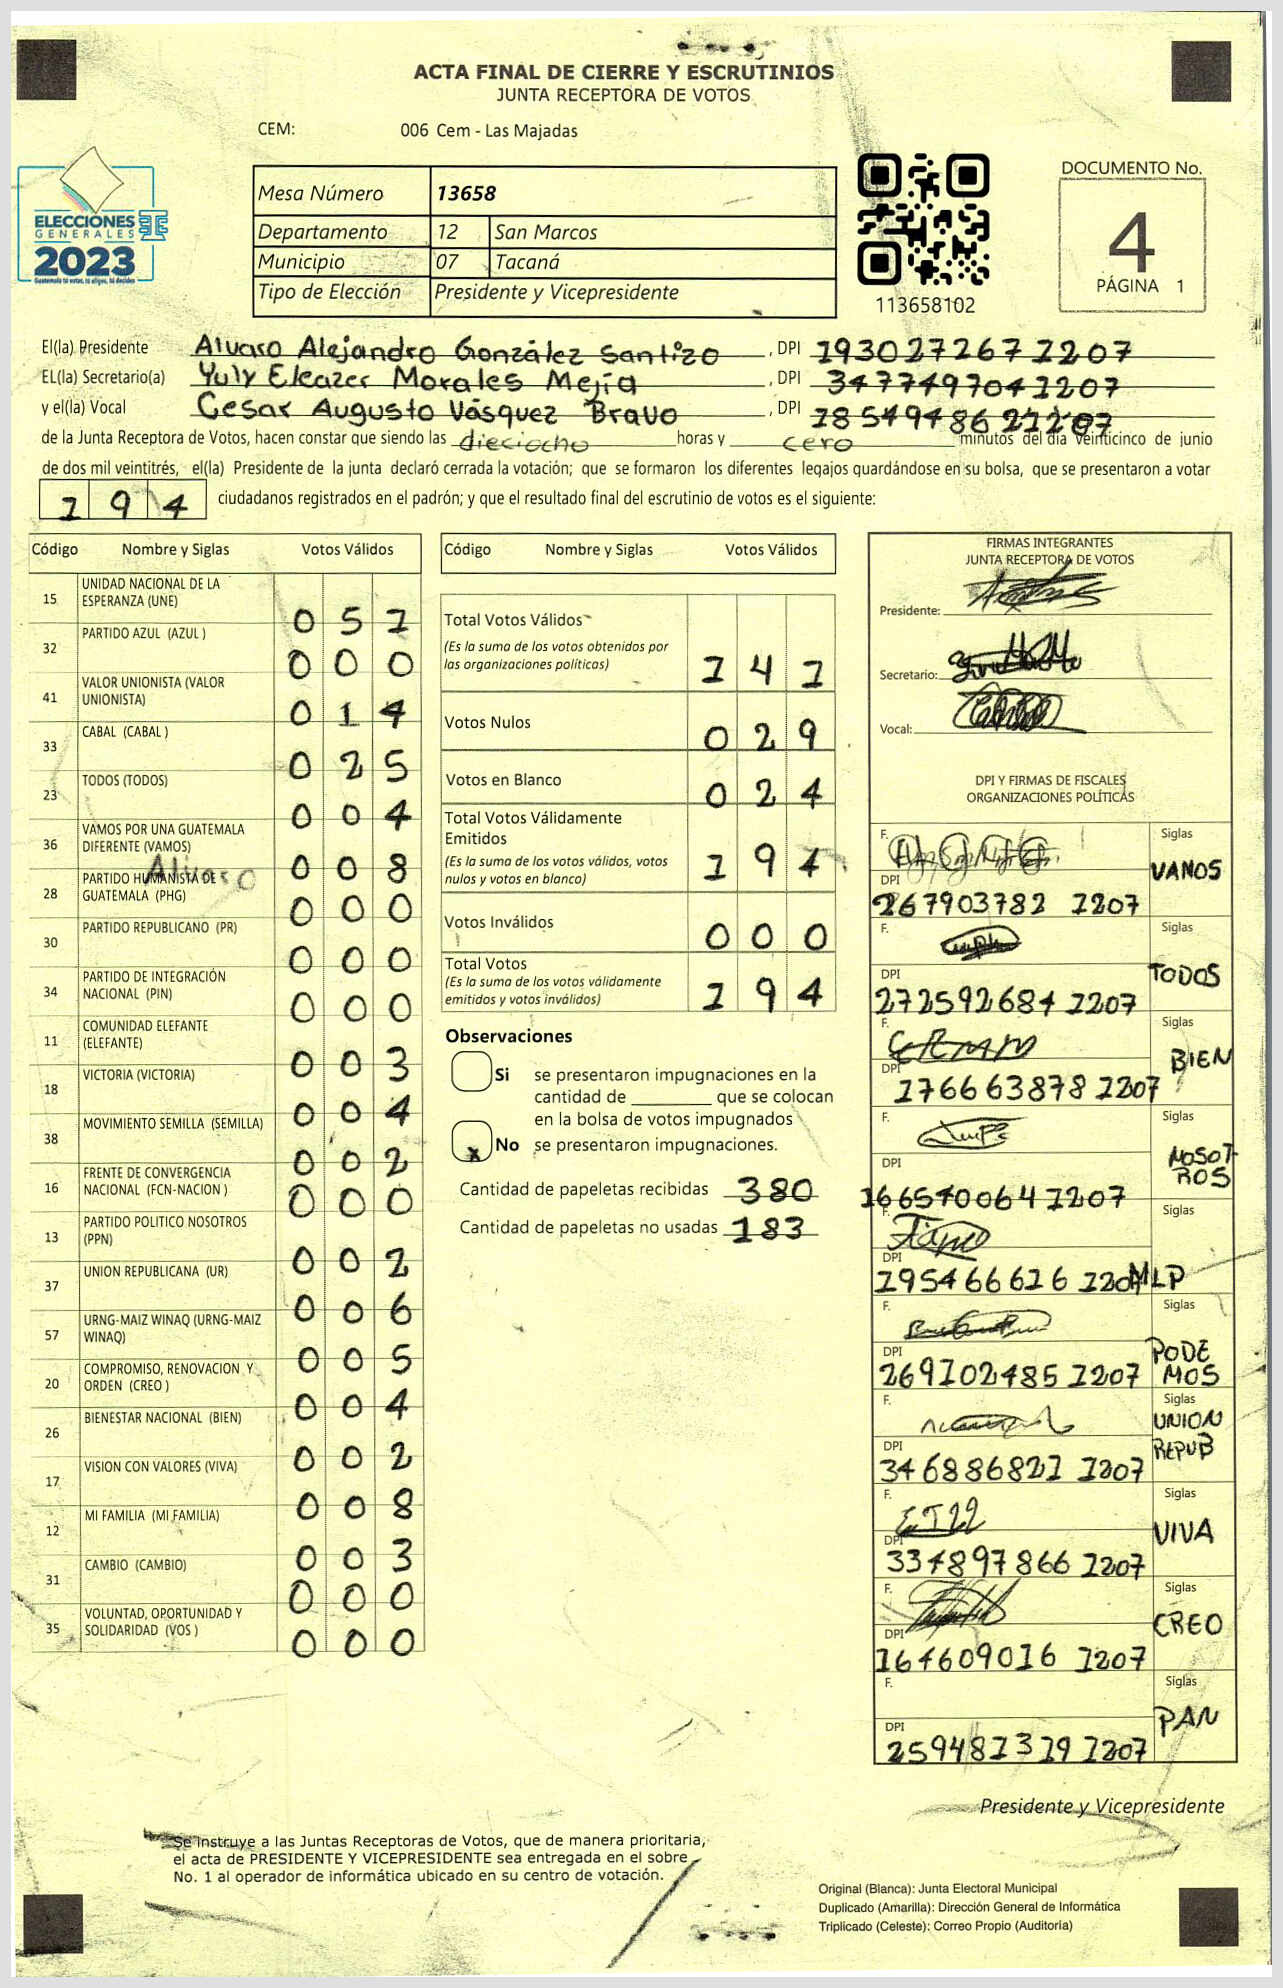 ACTA FINAL DE CIERRE Y ESCRUTINIOS
JUNTA RECEPTORA DE VOTOS
CEM: 006 Cem - Las Majadas
ELECCIONES
GENERALES
2023
Guatemala tú votas, tú eliges, tú decides
Mesa Número 13658
Departamento 12 San Marcos
Municipio 07 Tacaná
Tipo de Elección Presidente y Vicepresidente
113658102
DOCUMENTO No.
4
PÁGINA 1
El(la) Presidente Alvaro Alejandro González Santizo, DPI 193027267 1207
EL(la) Secretario(a) Yuly Eleazer Morales Mejía, DPI 347749704 1207
y el(la) Vocal Cesar Augusto Vásquez Bravo, DPI 185494862 1207
de la Junta Receptora de Votos, hacen constar que siendo las dieciocho horas y cero minutos del día veinticinco de junio
de dos mil veintitrés, el(la) Presidente de la junta declaró cerrada la votación; que se formaron los diferentes legajos guardándose en su bolsa, que se presentaron a votar
194 ciudadanos registrados en el padrón; y que el resultado final del escrutinio de votos es el siguiente:
Código Nombre y Siglas Votos Válidos
15 UNIDAD NACIONAL DE LA ESPERANZA (UNE) 051
32 PARTIDO AZUL (AZUL ) 000
41 VALOR UNIONISTA (VALOR UNIONISTA) 014
33 CABAL (CABAL ) 025
23 TODOS (TODOS) 004
36 VAMOS POR UNA GUATEMALA DIFERENTE (VAMOS) 008
Alvaro
28 PARTIDO HUMANISTA DE GUATEMALA (PHG) 000
30 PARTIDO REPUBLICANO (PR) 000
34 PARTIDO DE INTEGRACIÓN NACIONAL (PIN) 000
11 COMUNIDAD ELEFANTE (ELEFANTE) 003
18 VICTORIA (VICTORIA) 004
38 MOVIMIENTO SEMILLA (SEMILLA) 002
16 FRENTE DE CONVERGENCIA NACIONAL (FCN-NACION ) 000
13 PARTIDO POLITICO NOSOTROS (PPN) 002
37 UNION REPUBLICANA (UR) 006
57 URNG-MAIZ WINAQ (URNG-MAIZ WINAQ) 005
20 COMPROMISO, RENOVACION Y ORDEN (CREO ) 004
26 BIENESTAR NACIONAL (BIEN) 002
17 VISION CON VALORES (VIVA) 008
12 MI FAMILIA (MI FAMILIA) 003
31 CAMBIO (CAMBIO) 000
35 VOLUNTAD, OPORTUNIDAD Y SOLIDARIDAD (VOS ) 000
Código Nombre y Siglas Votos Válidos
Total Votos Válidos 141
(Es la suma de los votos obtenidos por
las organizaciones políticas)
Votos Nulos 029
Votos en Blanco 024
Total Votos Válidamente
Emitidos 194
(Es la suma de los votos válidos, votos
nulos y votos en blanco)
Votos Inválidos 000
Total Votos 194
(Es la suma de los votos válidamente
emitidos y votos inválidos)
Observaciones
Si se presentaron impugnaciones en la
cantidad de ________ que se colocan
en la bolsa de votos impugnados
x No se presentaron impugnaciones.
Cantidad de papeletas recibidas 380
Cantidad de papeletas no usadas 183
FIRMAS INTEGRANTES
JUNTA RECEPTORA DE VOTOS
Presidente:
Secretario:
Vocal:
DPI Y FIRMAS DE FISCALES
ORGANIZACIONES POLÍTICAS
F. Siglas VAMOS
DPI 267903782 1207
F. Siglas TODOS
DPI 272592684 1207
F. Siglas BIEN
DPI 176663878 1207
F. Siglas NOSOTROS
DPI 166570064 1207
F. Siglas MLP
DPI 195466626 1207
F. Siglas PODEMOS
DPI 269102485 1207
F. Siglas UNION REPUB
DPI 346886821 1207
F. Siglas VIVA
DPI 334897866 1207
F. Siglas CREO
DPI 164609016 1207
F. Siglas PAN
DPI 259481319 1207
Presidente y Vicepresidente
Se instruye a las Juntas Receptoras de Votos, que de manera prioritaria,
el acta de PRESIDENTE Y VICEPRESIDENTE sea entregada en el sobre
No. 1 al operador de informática ubicado en su centro de votación.
Original (Blanca): Junta Electoral Municipal
Duplicado (Amarilla): Dirección General de Informática
Triplicado (Celeste): Correo Propio (Auditoría)